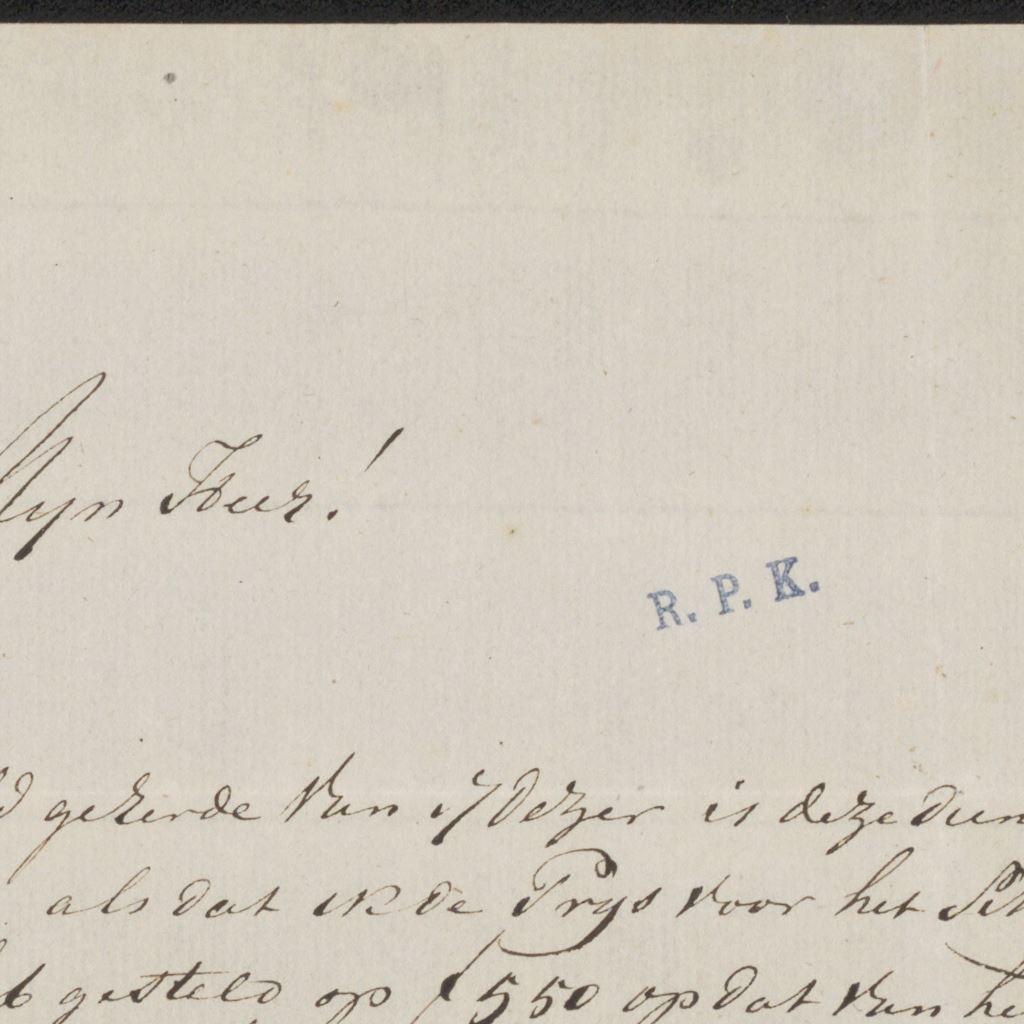 Myn Heer!
R. P. K.
geëerde van 17 dezer is deze dien
als dat ik de Prys voor het
gesteld op f 550 op dat van he